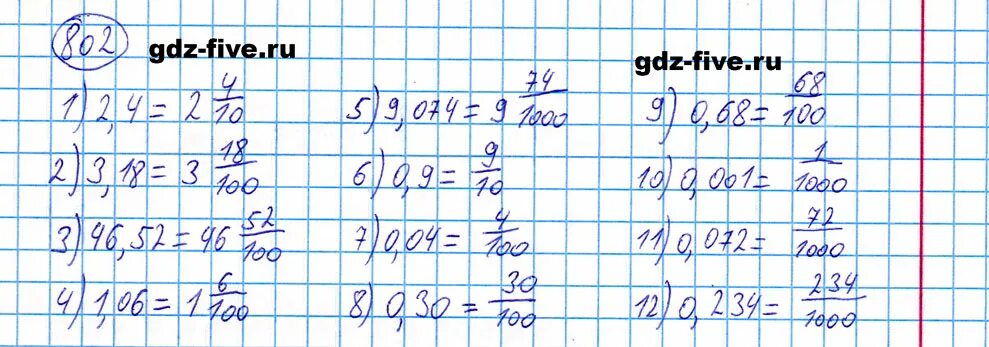 802
gdz-five.ru
gdz-five.ru
1) 2,4 = 2 4/10
2) 3,18 = 3 18/100
3) 46,52 = 46 52/100
4) 1,06 = 1 6/100
5) 9,074 = 9 74/1000
6) 0,9 = 9/10
7) 0,04 = 4/100
8) 0,30 = 30/100
9) 0,68 = 68/100
10) 0,001 = 1/1000
11) 0,072 = 72/1000
12) 0,234 = 234/1000